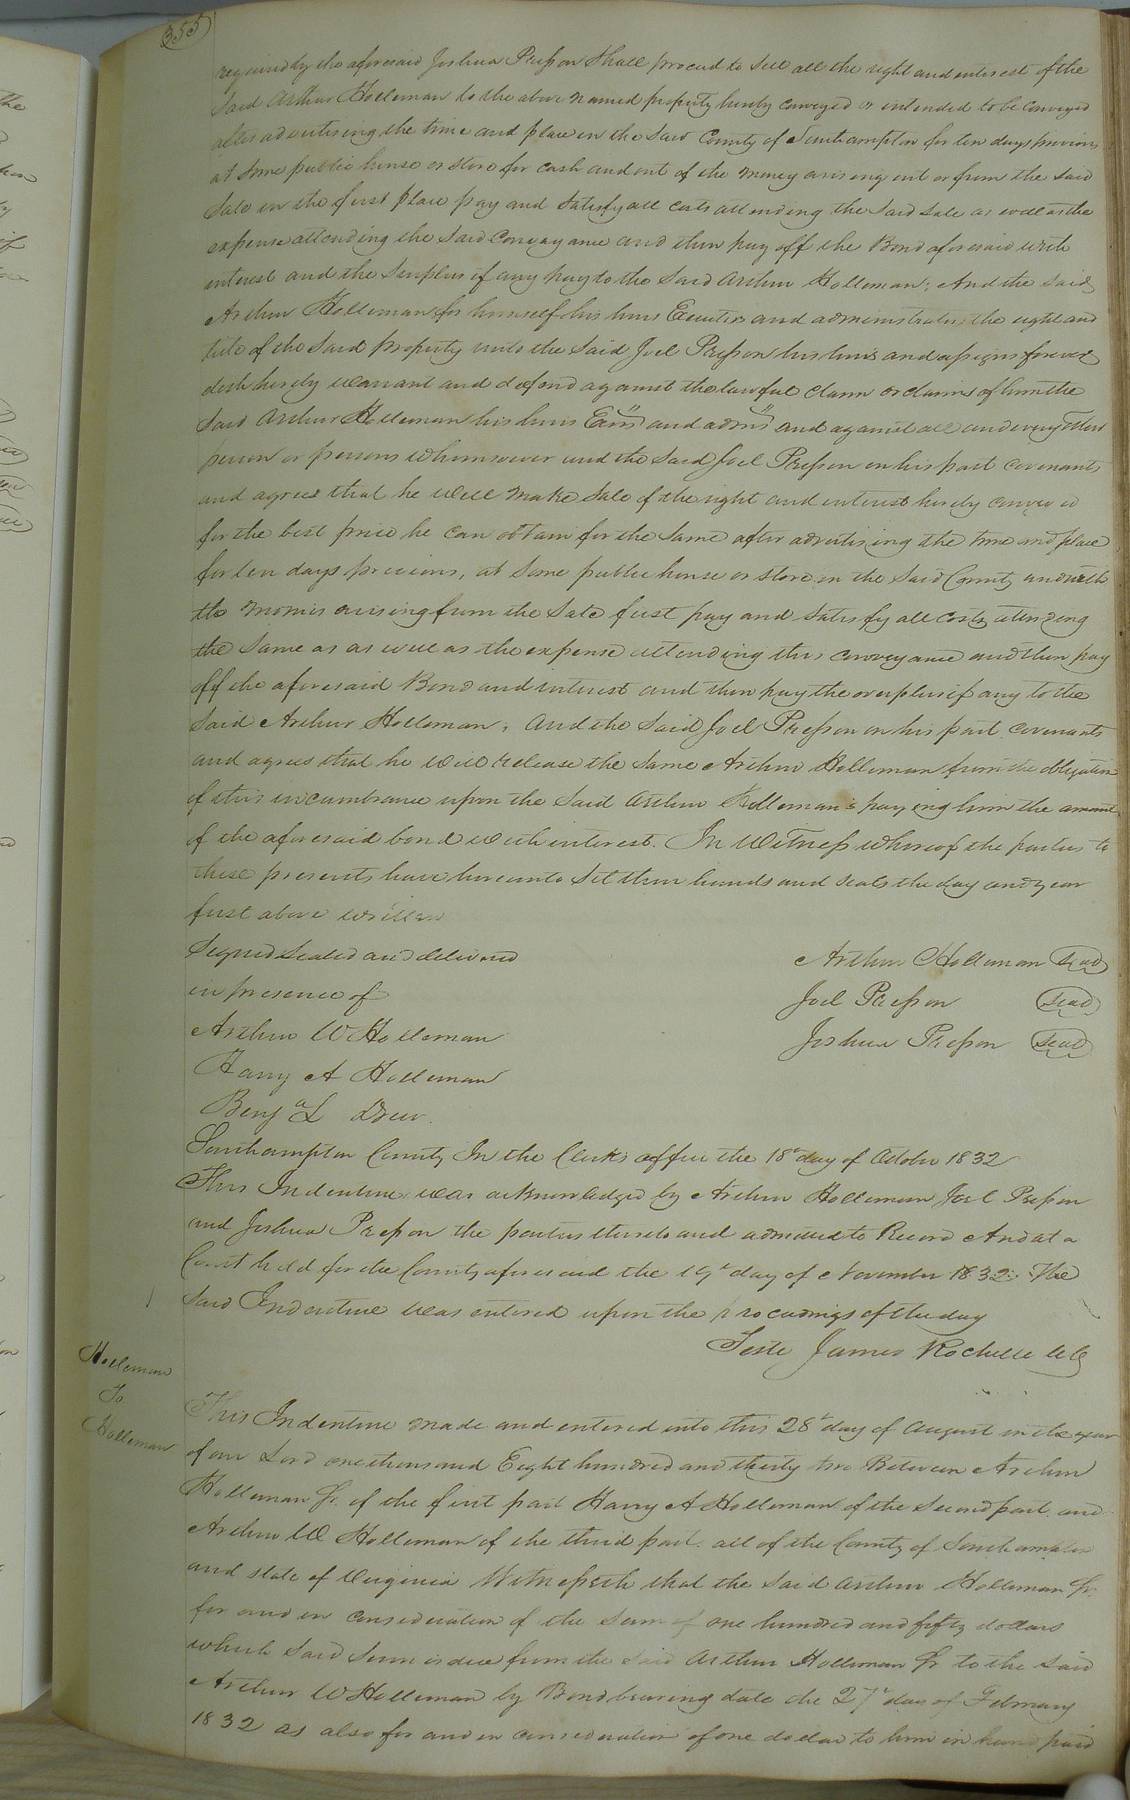 355
required by the aforesaid Joshua Presson Shall proceed to Sell all the right and interest of the
Said Arthur Holleman to the above named property hereby conveyed or intended to be conveyed
after advertising the time and place in the Said County of Southampton for ten days previous
at Some public house or store for cash and out of the money arising out or from the Said
Sale in the first place pay and Satisfy all costs attending the Said Sale as well as the
expense attending the Said Conveyance and then pay off the Bond aforesaid with
interest and the Surplus if any pay to the Said Arthur Holleman; And the Said
Arthur Holleman for himself his heirs Executors and administrators the right and
title of the Said property unto the Said Joel Presson his heirs and assigns forever
doth hereby warrant and defend against the lawful claim or claims of him the
Said Arthur Holleman his heirs Exrs and admrs and against all and every other
person or persons whomsoever and the Said Joel Presson on his part covenants
and agrees that he will make Sale of the right and interest hereby conveyed
for the best price he can obtain for the Same after advertising the time and place
for ten days previous, at Some public house or store in the Said County and with
the monies arising from the Sale first pay and Satisfy all costs attending
the Same as as well as the expense attending this conveyance and then pay
off the aforesaid Bond and interest and then pay the overplus if any to the
Said Arthur Holleman, And the Said Joel Presson on his part covenants
and agrees that he will release the Same Arthur Holleman from the obligation
of this incumbrance upon the Said Arthur Holleman's paying him the amount
of the aforesaid bond with interest. In Witness whereof the parties to
these presents have hereunto Set their hands and Seals the day and year
first above written
Signed Sealed and delivered Arthur Holleman Seal
in presence of Joel Presson Seal
Arthur W Holleman Joshua Presson Seal
Harry A Holleman
Benja L Drew.
Southampton County In the Clerk's office the 18th day of October 1832
This Indenture was acknowledged by Arthur Holleman Joel Presson
and Joshua Presson the parties thereto and admitted to Record And at a
Court held for the County aforesaid the 19th day of November 1832. The
Said Indenture was entered upon the proceedings of the day
Teste James Rochelle CC
Holleman
To
Holleman
This Indenture made and entered into this 28th day of August in the year
of our Lord one thousand Eight hundred and thirty two Between Arthur
Holleman Sr. of the first part Harry A Holleman of the Second part and
Arthur W Holleman of the third part. all of the County of Southampton
and state of Virginia Witnesseth that the Said Arthur Holleman Sr.
for and in consideration of the Sum of one hundred and fifty dollars
which Said Sum is due from the said Arthur Holleman Sr to the Said
Arthur W Holleman by Bond bearing date the 27th day of February
1832 as also for and in consideration of one dollar to him in hand paid